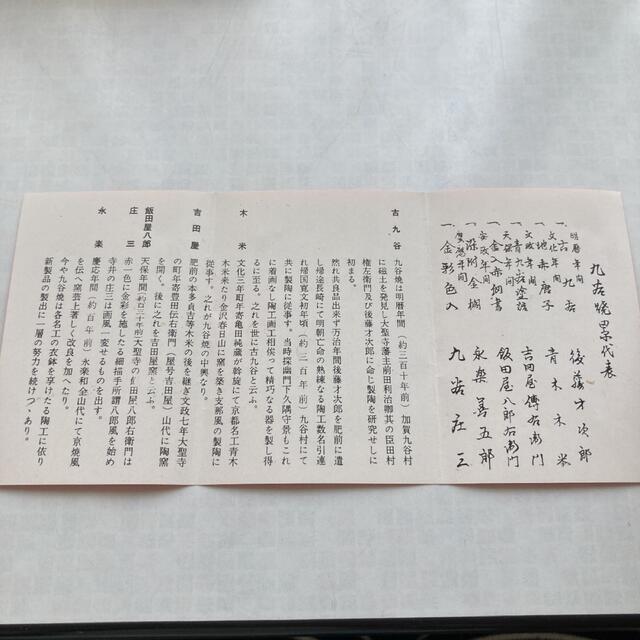 九谷焼累代表
明暦年間
一、古九谷 後藤才次郎
文化年間
一、地赤唐子 青木木米
文政年間
一、青九谷塗詰 吉田屋傳右衛門
天保年間
一、金入赤細書 飯田屋八郎右衛門
安政年間
永樂善五郎
慶應年間
一、金彩色入 九谷庄三
古九谷
九谷焼は明暦年間、(約三百十年前)加賀九谷村
に磁土を発見し大聖寺藩主前田利治卿其の臣田村
権左衛門及び後藤才次郎に命じ製陶を研究せしに
初まる。
然れ共良品出来ず万治年間後藤才次郎を肥前に遣
し帰途長崎にて明朝亡命の熟練なる陶工数名引連
れ帰国寛文初年頃(約三百年前)九谷村にて
共に製陶に従事す。当時探幽門下久隅守景もこれ
に着画なし陶工画工相俟って精巧なる器を製し得
るに至る。之れを世に古九谷と云ふ。
木米
文化三年町年寄亀田純蔵が斡旋にて京都名工青木
木米来たり金沢春日山に窯を築き支那風の製陶に
従事す。之れが九谷焼の中興なり。
吉田屋
肥前の本多貞吉等木米の後を継ぎ文政七年大聖寺
の町年寄豊田伝右衛門(屋号吉田屋)山代に陶窯
を開く。後に之れを吉田屋窯と云ふ。
飯田屋八郎
天保年間(約百三十年前)大聖寺の飯田屋八郎右衛門は
庄三
赤一色に金彩を施したる細描手所謂八郎風を始め
寺井の庄三は画風一変せるものを出す。
永楽
慶応年間(約百年前)永楽和全山代にて京焼風
を伝へ窯芸上著しく改良を加へたり。
今や九谷焼は各名工の衣鉢を享けたる陶工に依り
新製品の製出に一層の努力を続けつゝあり。